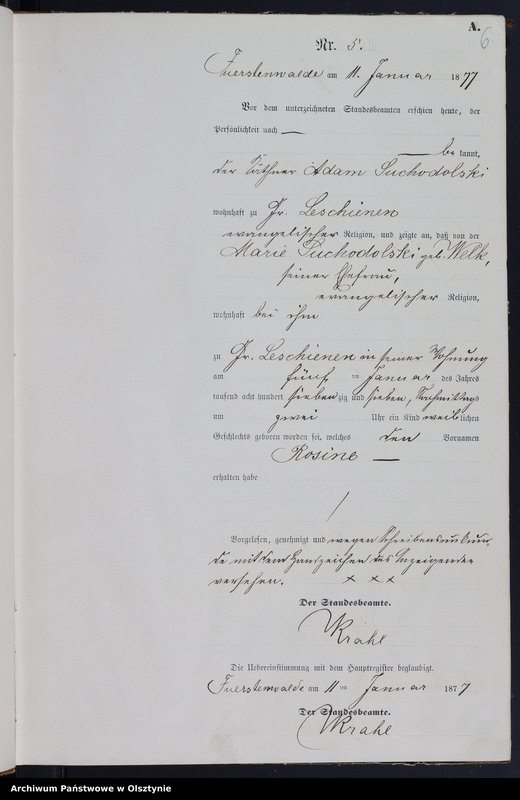 A.
6
Nr. 5.
Fuerstenwalde am 11. Januar 1877
Vor dem unterzeichneten Standesbeamten erschien heute, der
Persönlichkeit nach —
— be kannt,
der Käthner Adam Suchodolski
wohnhaft zu Gr. Leschienen
evangelischer Religion, und zeigte an, daß von der
Marie Suchodolski geb. Welk,
seiner Ehefrau,
evangelischer Religion,
wohnhaft bei ihm
zu Gr. Leschienen in seiner Wohnung
am fünf ten Januar des Jahres
tausend acht hundert sieben zig und sieben, Nachmittags
um zwei Uhr ein Kind weib lichen
Geschlechts geboren worden sei, welches den Vornamen
Rosine —
erhalten habe
Vorgelesen, genehmigt und wegen Schreibensunkun-
de mit dem Handzeichen des Anzeigenden
versehen. + + +
Der Standesbeamte.
Krahl
Die Uebereinstimmung mit dem Hauptregister beglaubigt.
Fuerstenwalde am 11 ten Januar 1877
Der Standesbeamte.
Krahl
Archiwum Państwowe w Olsztynie